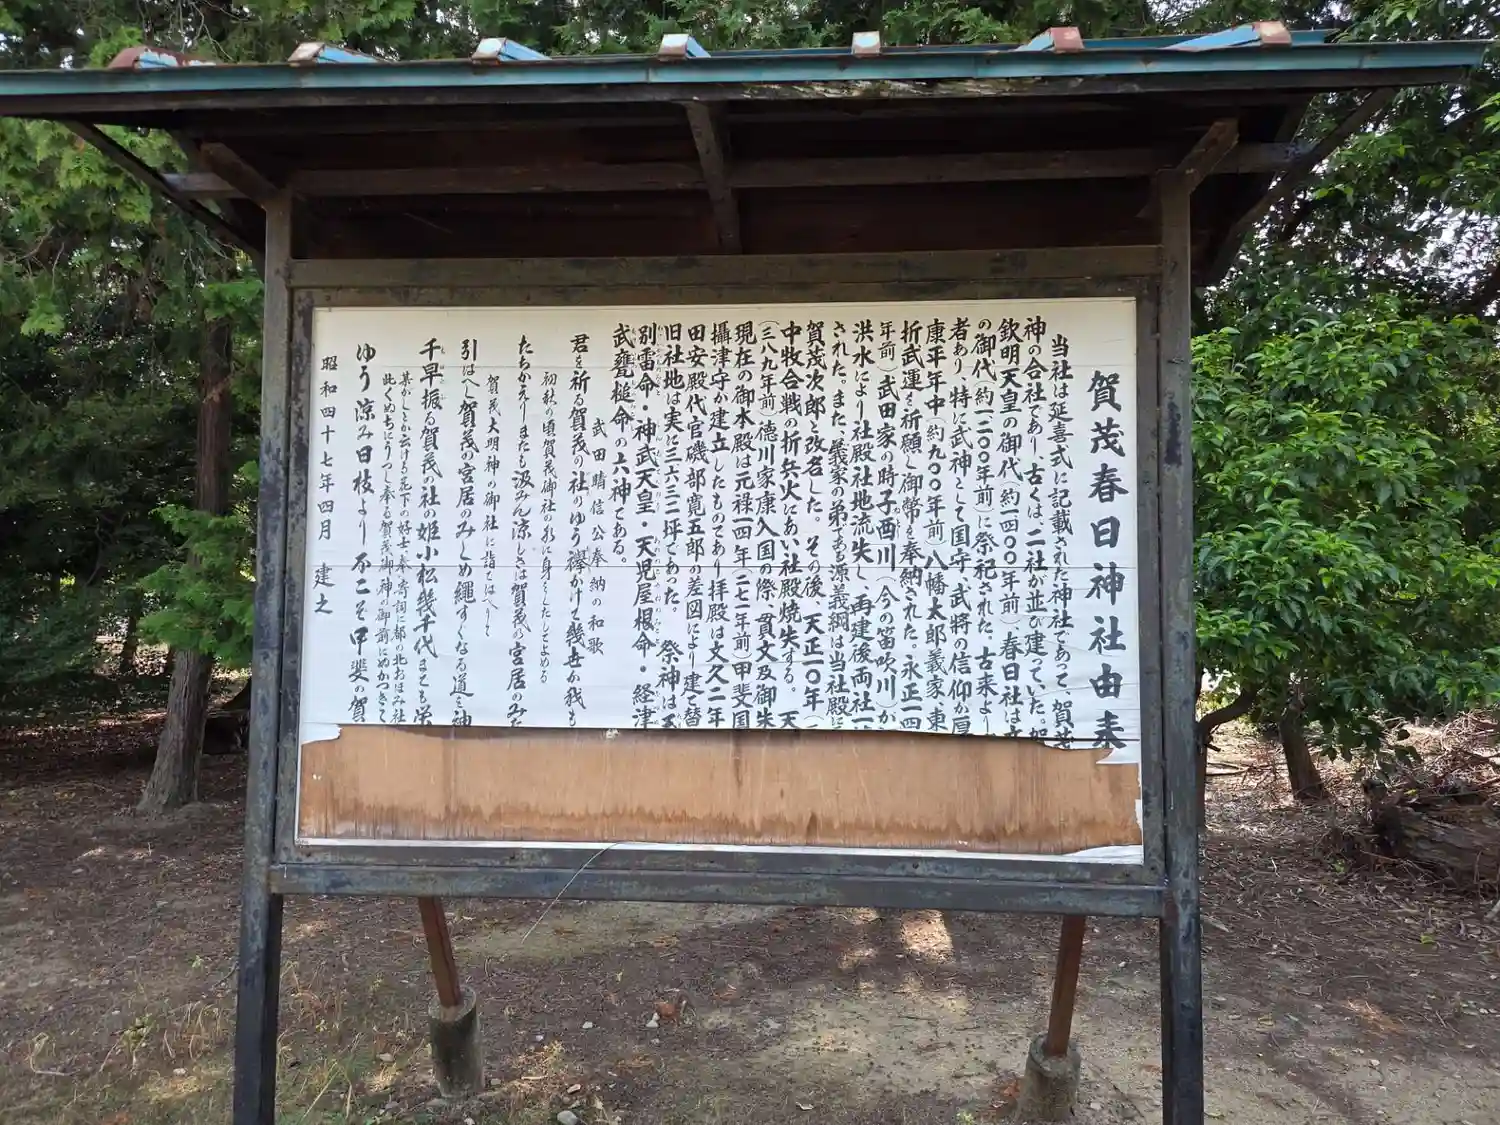 賀茂春日神社由来
当社は延喜式に記載された神社であって、賀茂
神の合社であり、古くは二社が並び建っていた。賀
欽明天皇の御代（約一四〇〇年前）春日社は文
の御代（約一二〇〇年前）に祭祀された、古来より
者あり、特に武神として国守、武将の信仰が厚
康平年中（約九〇〇年前）八幡太郎義家、東
折武運を祈願し御幣を奉納された。永正一四
年前）武田家の時子酉川（今の笛吹川）が
洪水により社殿社地流失し、再建後両社一
された。また、義家の弟である源義綱は当社殿に
賀茂次郎と改名した。その後、天正一〇年（
中牧合戦の折兵火にあい社殿焼失する。天
（三八九年前）徳川家康入国の際、一貫文及御朱
現在の御本殿は元禄一四年（二七一年前）甲斐国
攝津守が建立したものであり拝殿は文久二年
田安殿代官磯部寛五郎の差図により建て替
旧社地は実に三六三二坪であった。　祭神は玉
別雷命・神武天皇・天児屋根命・経津
武甕槌命の六神である。
武田晴信公奉納の和歌
君を祈る賀茂の社のゆう襷かけて幾世か我も
初秋の頃賀茂御社の
たちかえりまたも汲みん涼しさは賀茂の宮居のみた
賀茂大明神の御社に詣で
引はへし賀茂の宮居のみしめ縄すくなる道を神
千早振る賀茂の社の姫小松幾千代までも栄
ゆう涼み日枝より
昭和四十七年四月　建之